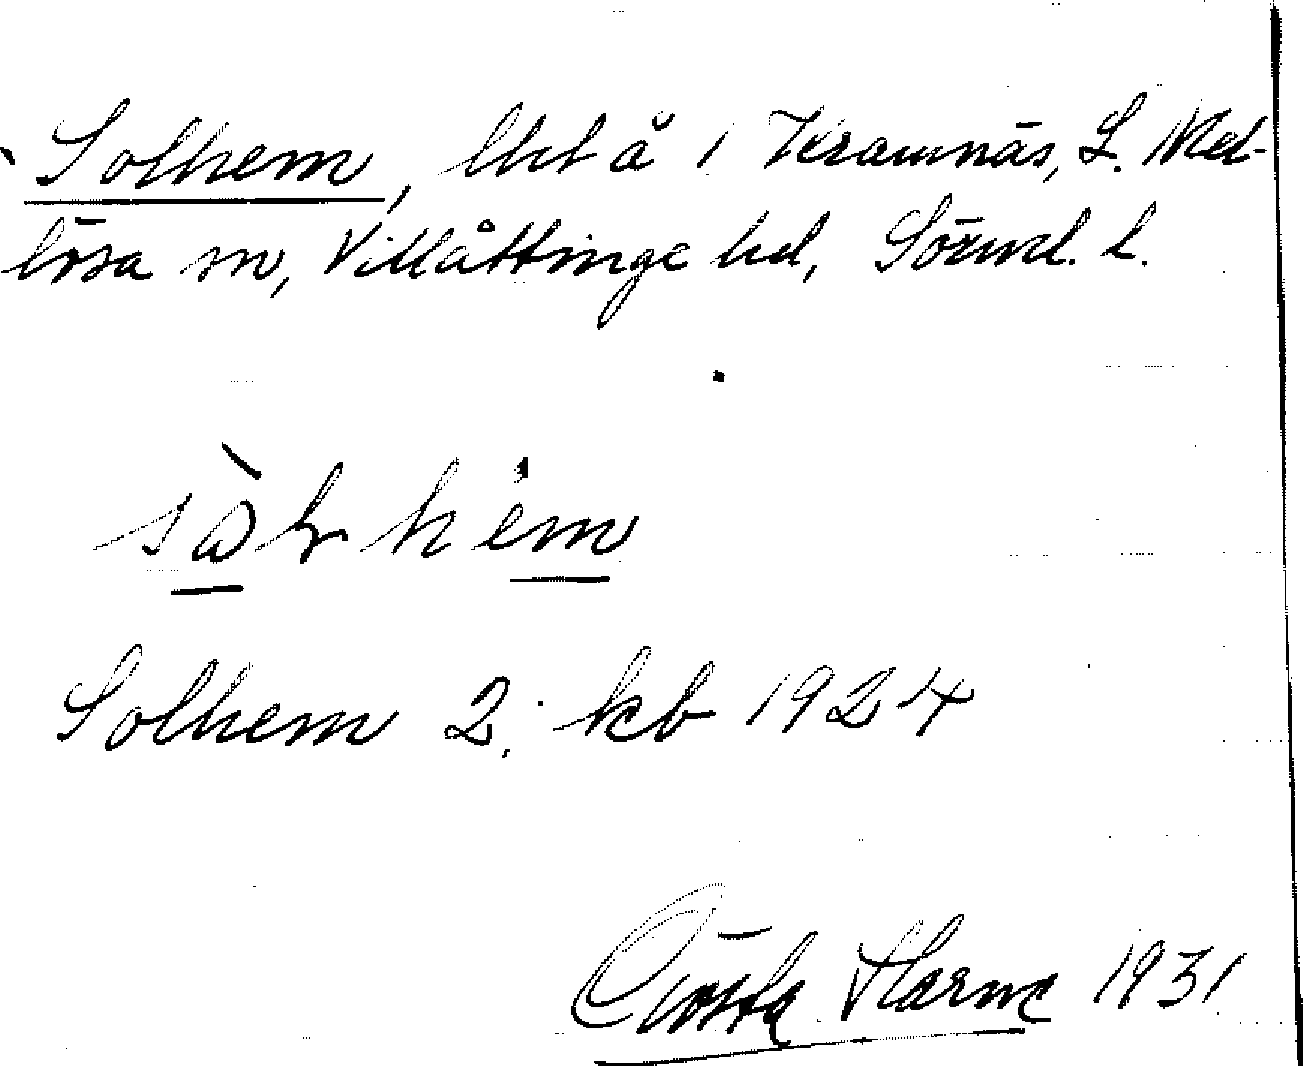 Solhem, lht å i Kramnäs, L. Mel-
lösa sn, Villåttinge hd, Södml. l.
sòlhem
Solhem 2. kb 1924
Gösta Harme 1931